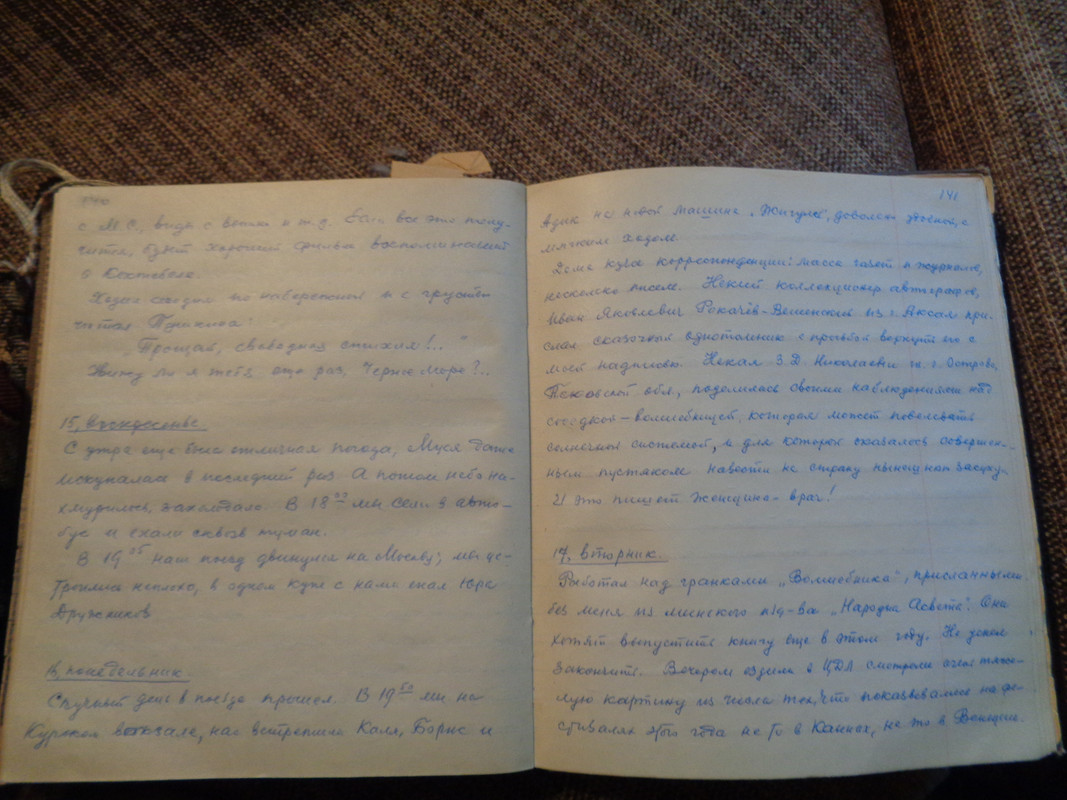 140
с М.С., виды с ветки и т.д. Если все это полу-
чится, будет хороший фильм воспоминаний
о Коктебеле.
Ходил сегодня по набережной и с грустью
читал Пушкина:
„Прощай, свободная стихия!.."
Увижу ли я тебя еще раз, Черное море?..
15, Воскресенье.
С утра еще была отличная погода, Муся даже
искупалась в последний раз. А потом небо на-
хмурилось, захолодало. В 18 мы сели в авто-
бус и ехали сквозь туман.
В 19 05 наш поезд двинулся на Москву; мы ус-
троились неплохо, в одном купе с нами ехал Юра
Дружников
16, понедельник
Скучный день в поезде прошел. В 19 50 мы на
Курском вокзале, нас встретили Каля, Борис и
141
Адик на новой машине „Жигули", довольно удобной, с
мягким ходом.
Дома куча корреспонденции: масса газет и журналов,
несколько писем. Некий коллекционер автографов,
Иван Яковлевич Рокачёв-Вешенский из г. Аксая при-
слал сказочный однотомник с просьбой вернуть его с
моей надписью. Некая З.Д. Николаевич из г. Острова,
Псковской обл., поделилась своими наблюдениями над
соседкой – волшебницей, которая может повелевать
солнечной системой, и для которой оказалось совершен-
ным пустяком навести на страну нынешнюю засуху.
И это пишет женщина-врач!
17, вторник.
Работал над гранками „Волшебника", присланными
без меня из минского изд-ва „Народна Асвета". Они
хотят выпустить книгу еще в этом году. Не успел
закончить. Вечером ездили в ЦДЛ смотрели очень тяже-
лую картину из числа тех, что показывались на фе-
стивалях этого года не то в Каннах, не то в Венеции.